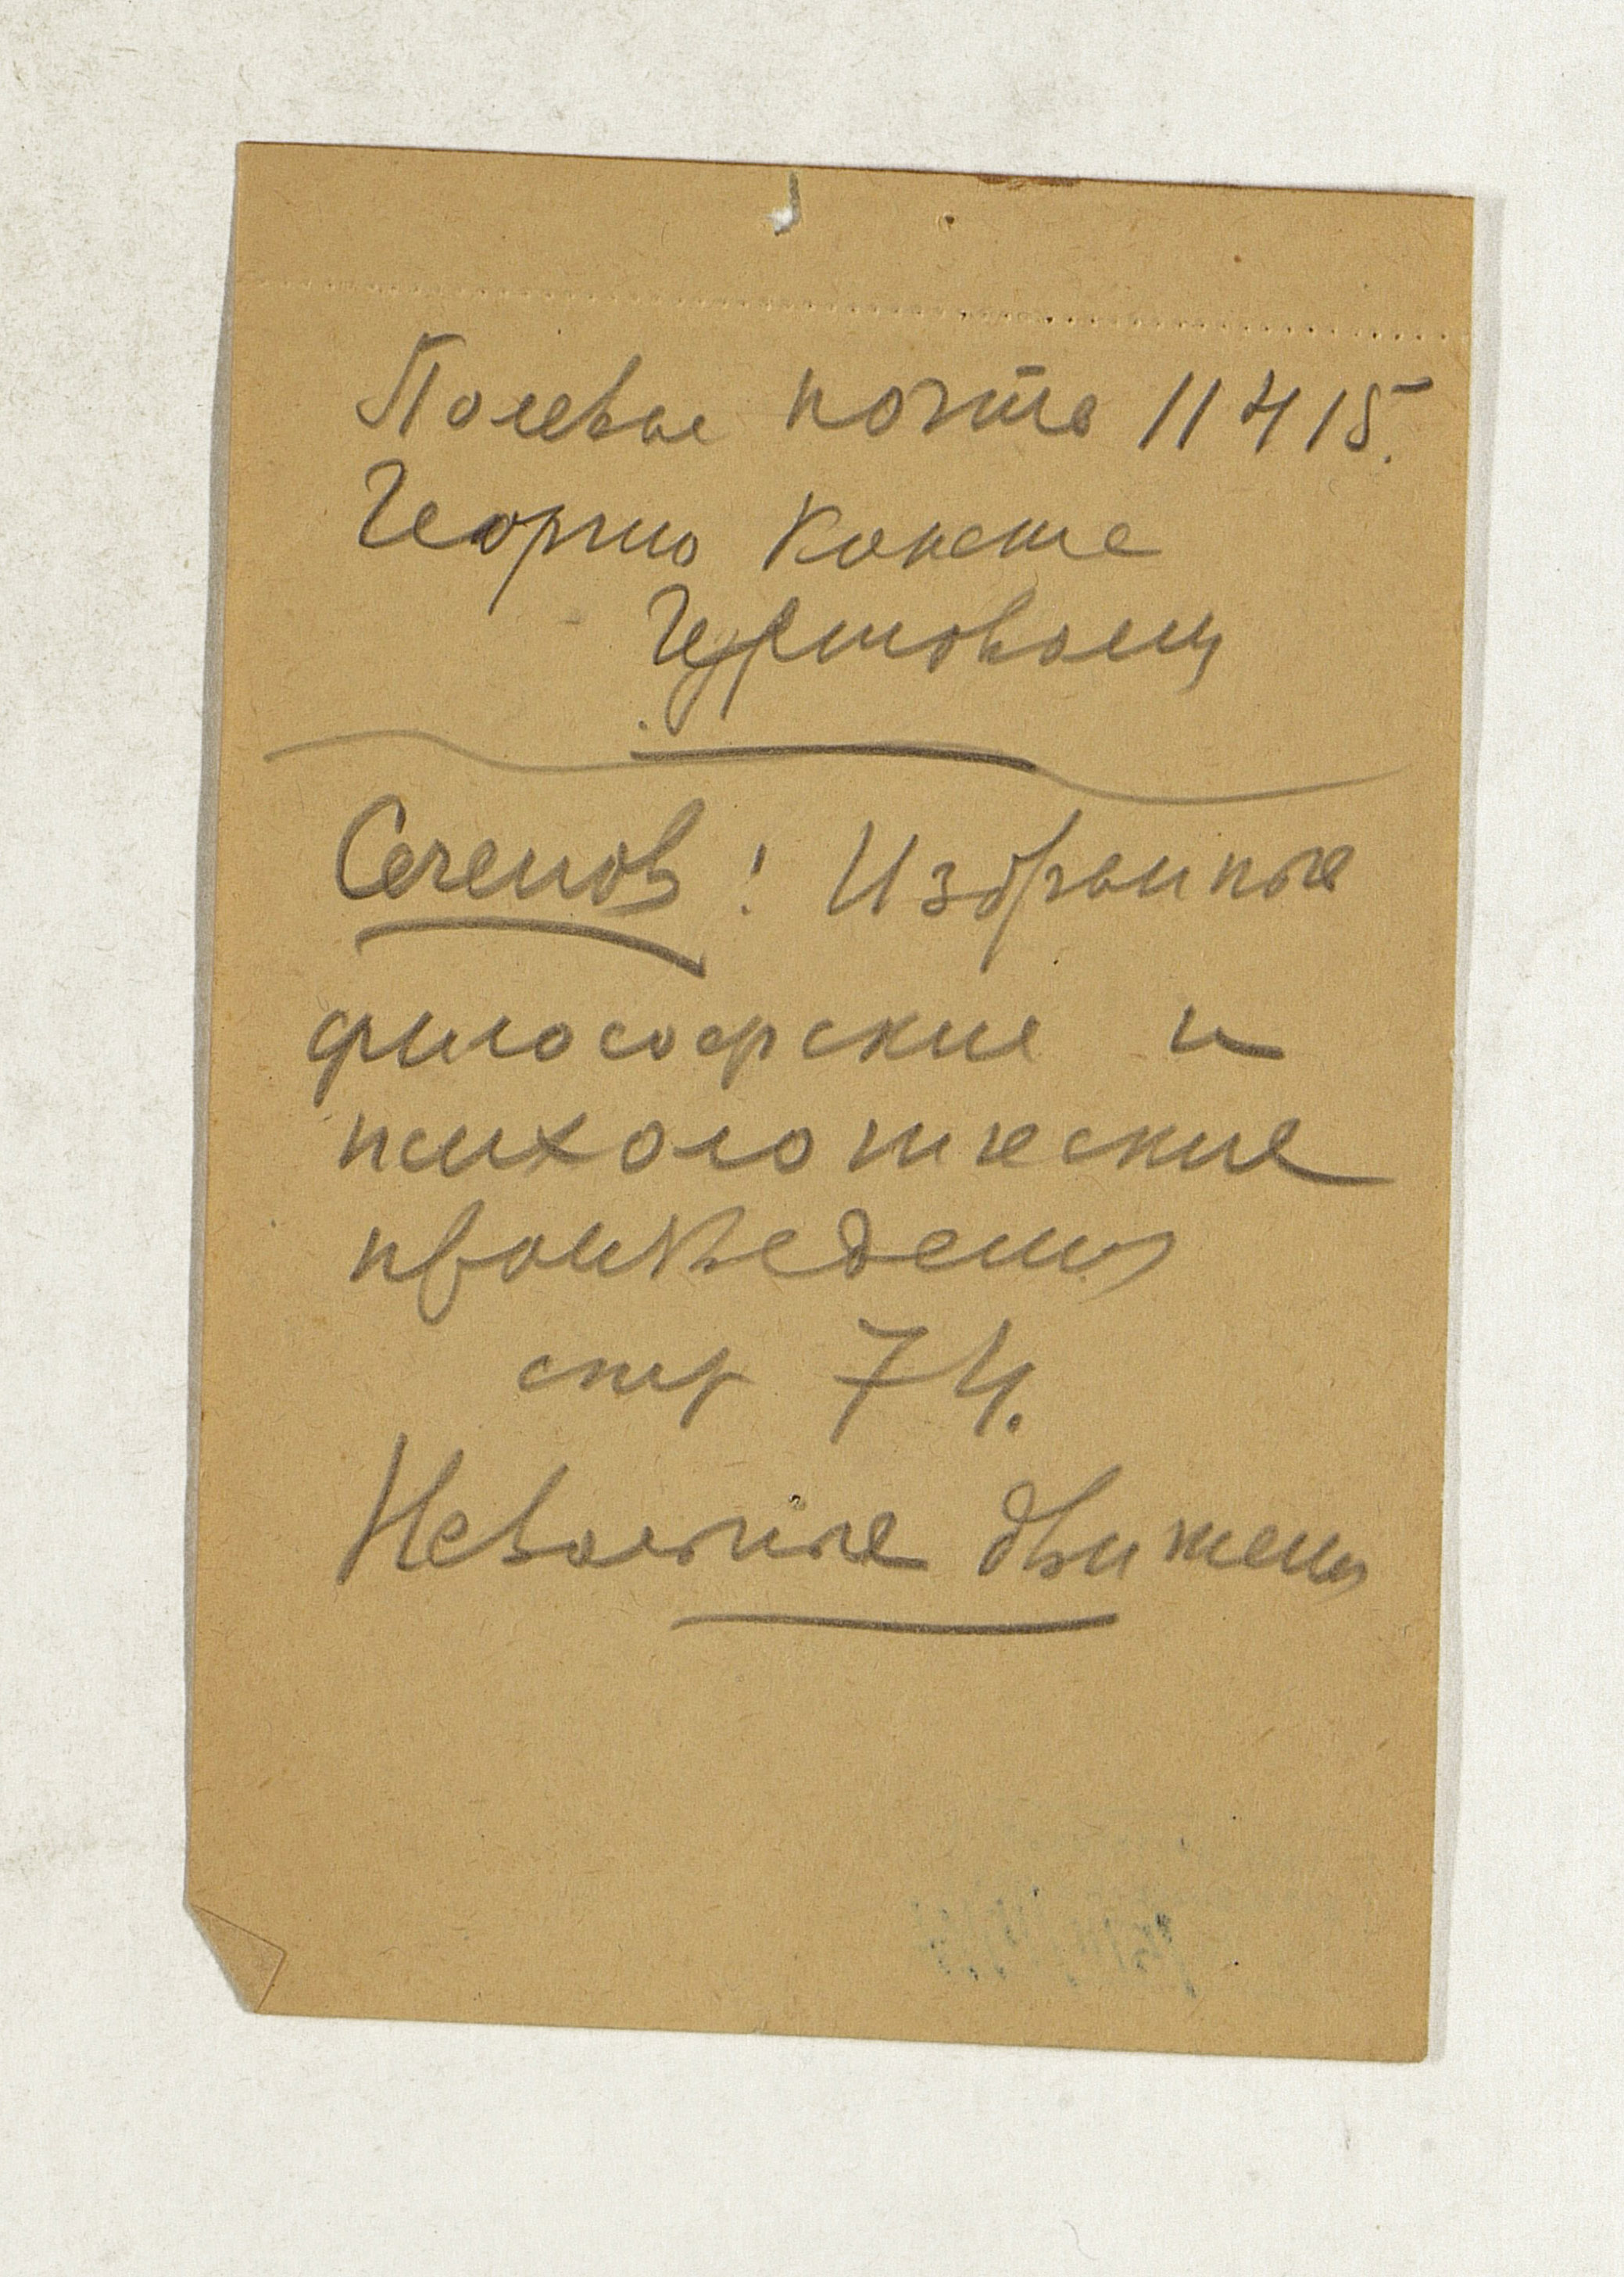 Полевая почта 11415.
Георгию Конста
Сеченов: Избранные
философские и
психологические
произведения
стр 74.
Невольные движения